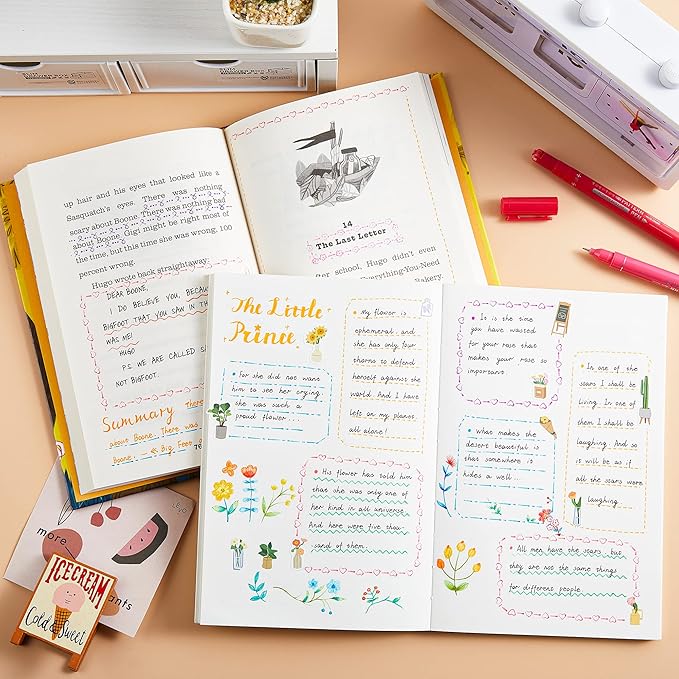 up hair and his eyes that looked like a
Sasquatch's eyes. There was nothing
scary about Boone. There was nothing bad
about Boone. Gigi might be right most of
the time, but this time she was wrong. 100
percent wrong.
Hugo wrote back straightaway:
DEAR BOONE,
I DO BELIEVE YOU, BECAUSE
BIGFOOT THAT YOU SAW IN TH
WAS ME!
HUGO
P.S. WE ARE CALLED SA
NOT BIGFOOT.
Summary There
about Boone. There was
Boone. Big Feet
76
14
The Last Letter
er school, Hugo didn't even
Everything-You-Need
Bakery.
The Little
Prince
For she did not want
him to see her crying.
she was such a
proud flower
My flower is
ephemeral. and
she has only four
thorns to defend
herself against the
world. And I have
left on my planes.
all alone!
His flower has told him
that she was only of
her kind in all universe.
And here were five thou-
sand of them.
It is the time
you have wasted
for your rose that
makes your rose so
important
What makes the
desert beautiful is
that somewhere is
hides a well...
In one of the
sears I shall be
living. In one of
them I shall be
laughing. And so
is will be as if
all the sears were
laughing.
All men have the sears, but
they are not the same things
for different people.
more
ants
ICECREAM
Cold & Sweet